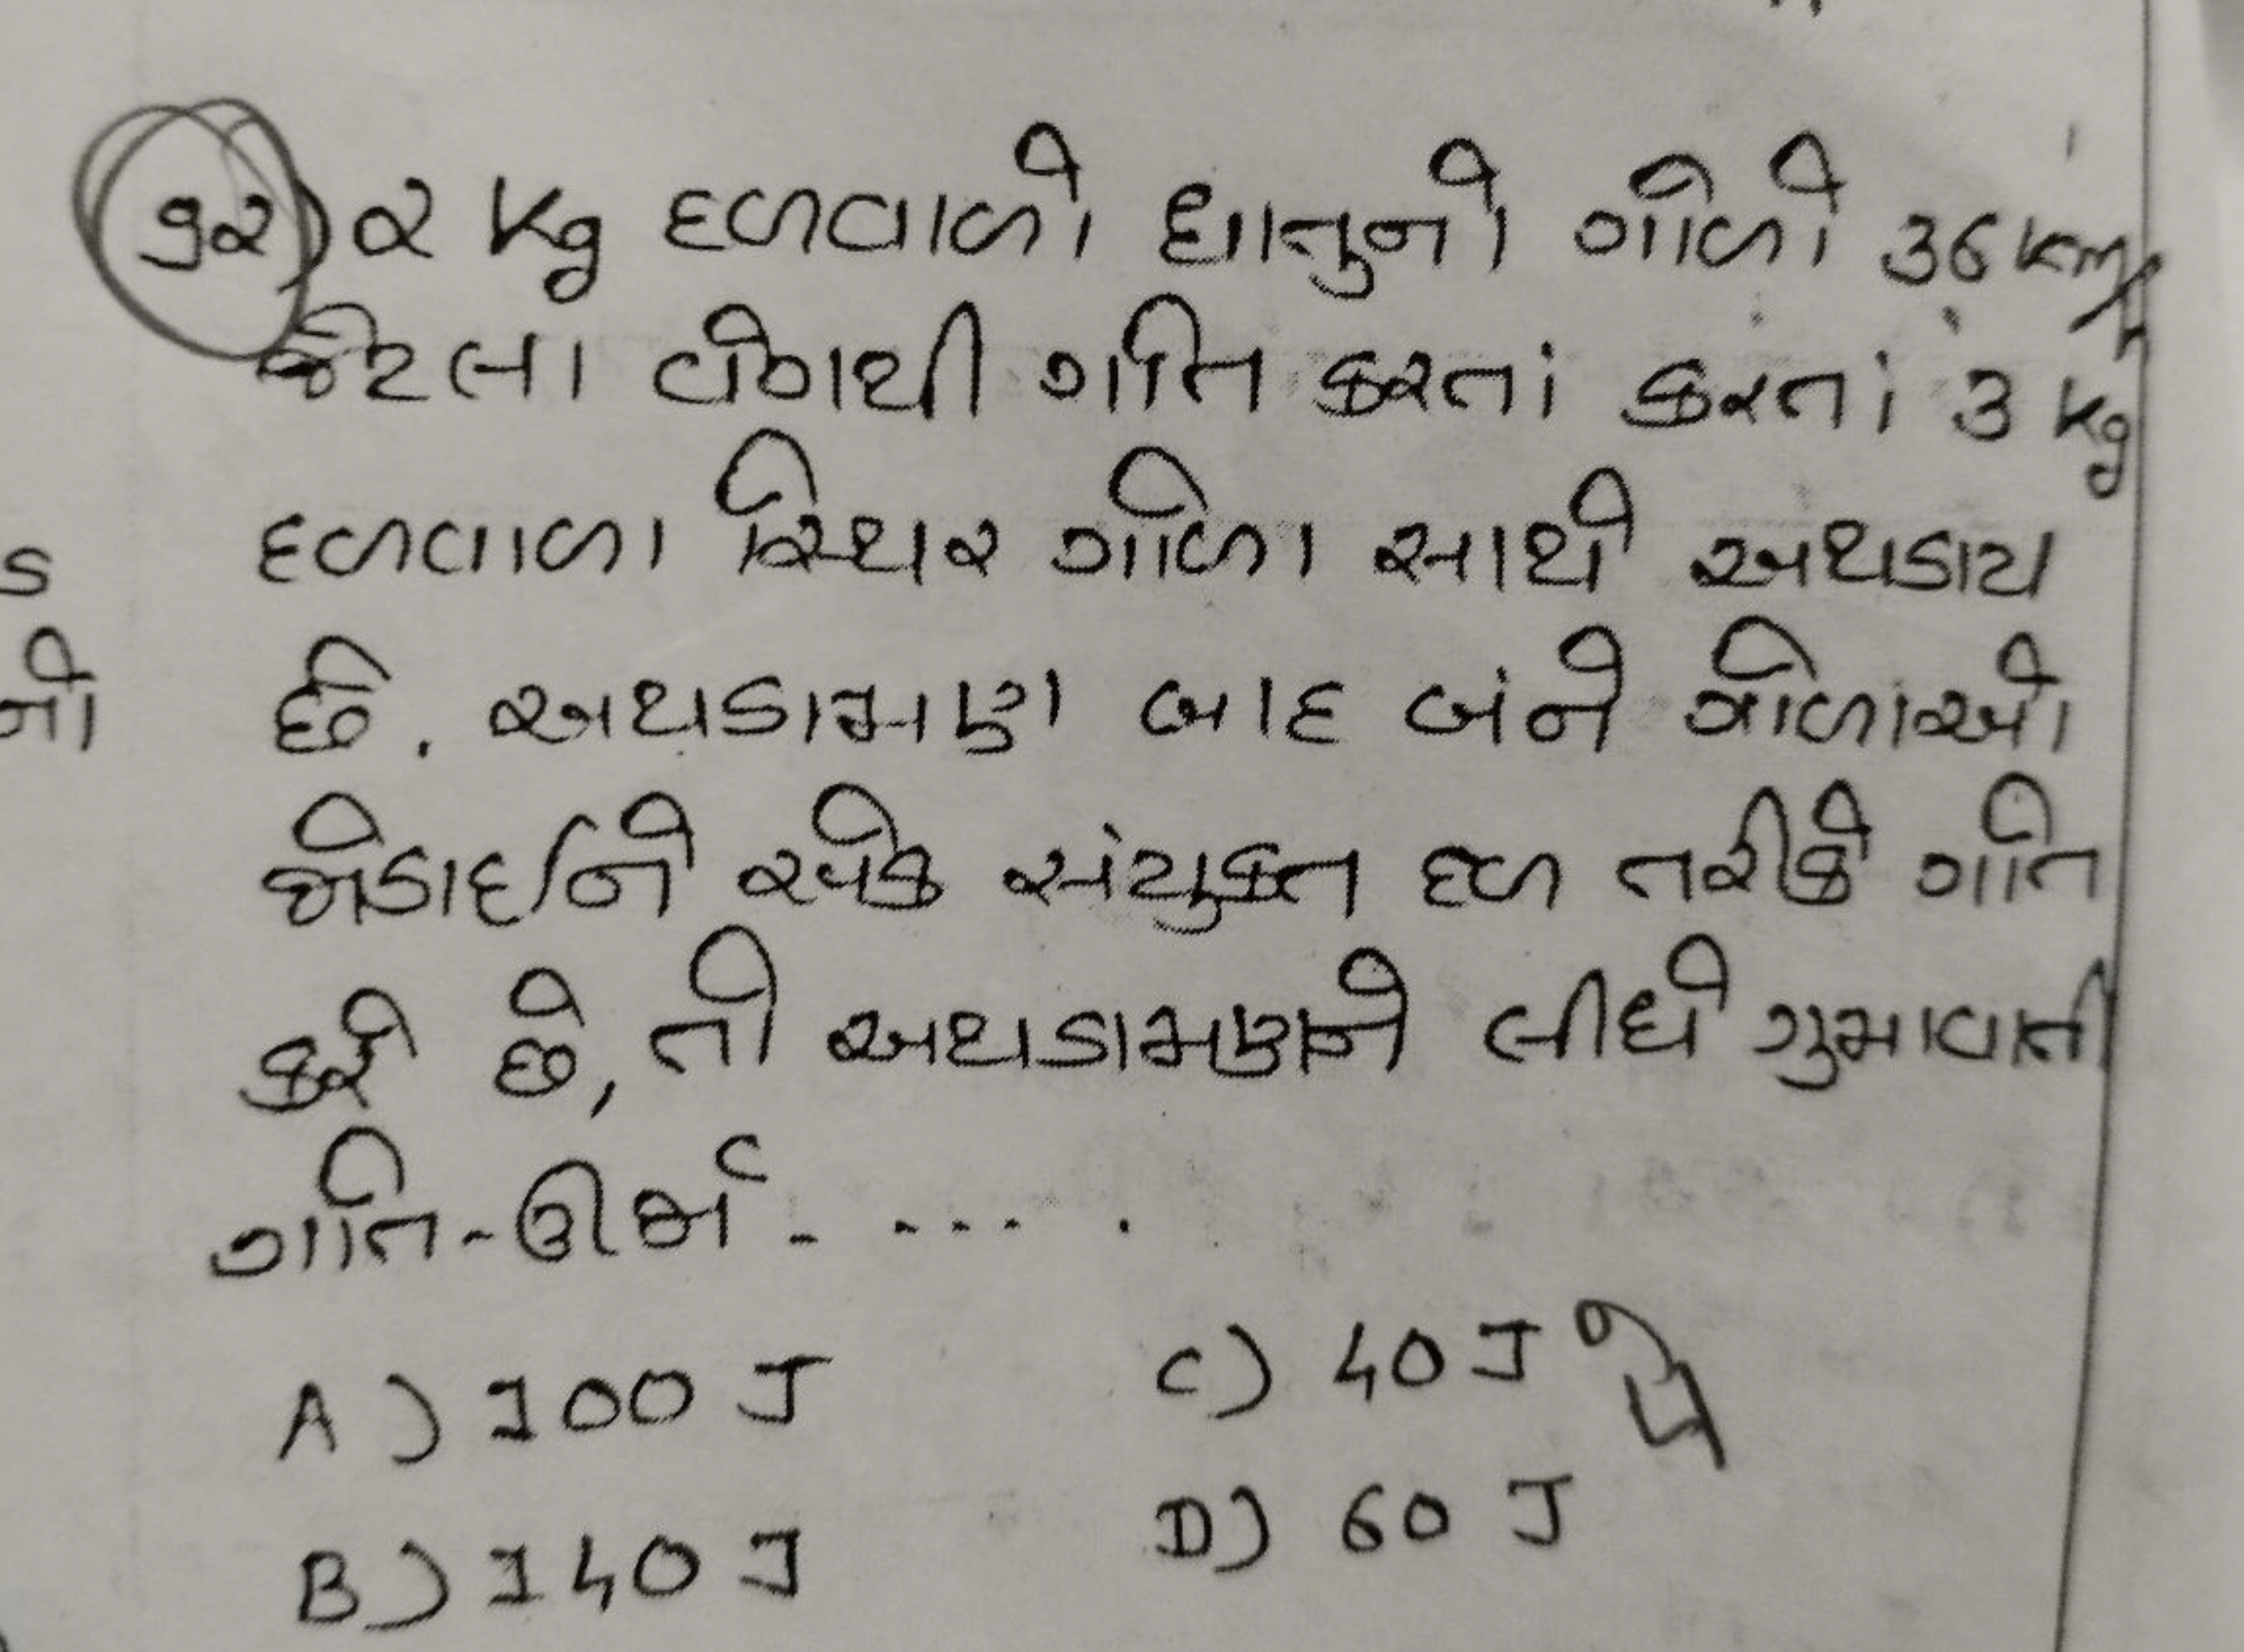 ૧૨) ૨ kg દળવાળો ધાતુનો ગોળો 36 km/h
જેટલા વેગથી ગતિ કરતાં કરતાં 3 kg
દળવાળા સ્થિર ગોળા સાથે અથડાય
છે. અથડામણ બાદ બંને ગોળાઓ
જોડાઈને એક સંયુક્ત દળ તરીકે ગતિ
કરે છે, તો અથડામણને લીધે ગુમાવાતી
ગતિ-ઊર્જા - ... .
A) 100 J
C) 40 J
B) 140 J
D) 60 J
ડ
નો